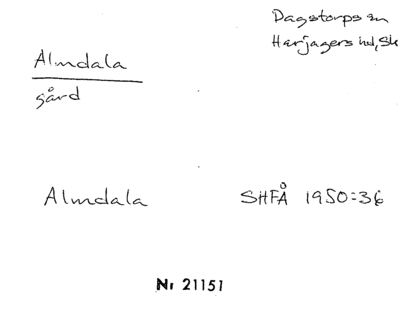 Dagstorps sn
Harjagers hd, Sk
Almdala
gård
Almdala SHFÅ 1950:36
Nr 21151